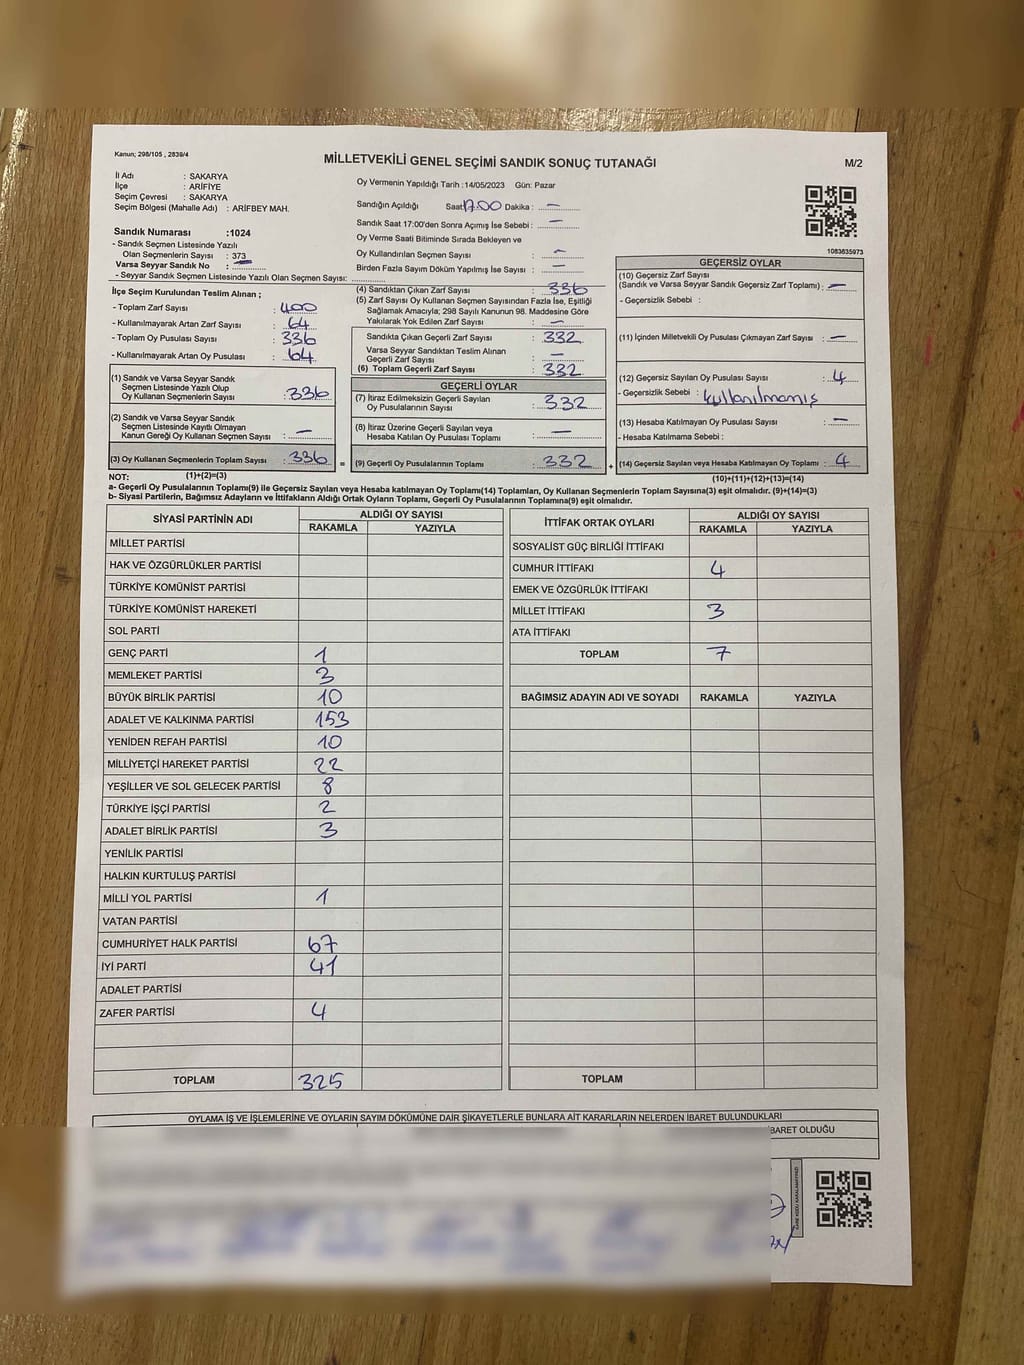 Kanun; 298/105 , 2839/4
MİLLETVEKİLİ GENEL SEÇİMİ SANDIK SONUÇ TUTANAĞI
M/2
İl Adı : SAKARYA
İlçe : ARİFİYE
Seçim Çevresi : SAKARYA
Seçim Bölgesi (Mahalle Adı) : ARİFBEY MAH.
Sandık Numarası :1024
- Sandık Seçmen Listesinde Yazılı
Olan Seçmenlerin Sayısı : 373
Varsa Seyyar Sandık No :
- Seyyar Sandık Seçmen Listesinde Yazılı Olan Seçmen Sayısı:
Oy Vermenin Yapıldığı Tarih :14/05/2023 Gün: Pazar
Sandığın Açıldığı Saat 17.00 Dakika : —
Sandık Saat 17:00'den Sonra Açımış İse Sebebi : —
Oy Verme Saati Bitiminde Sırada Bekleyen ve
Oy Kullandırılan Seçmen Sayısı : —
Birden Fazla Sayım Döküm Yapılmış İse Sayısı : —
1083635973
İlçe Seçim Kurulundan Teslim Alınan ;
- Toplam Zarf Sayısı : 400
- Kullanılmayarak Artan Zarf Sayısı : 64
- Toplam Oy Pusulası Sayısı : 336
- Kullanılmayarak Artan Oy Pusulası : 64
(1) Sandık ve Varsa Seyyar Sandık
Seçmen Listesinde Yazılı Olup
Oy Kullanan Seçmenlerin Sayısı : 336
(2) Sandık ve Varsa Seyyar Sandık
Seçmen Listesinde Kayıtlı Olmayan
Kanun Gereği Oy Kullanan Seçmen Sayısı : —
(3) Oy Kullanan Seçmenlerin Toplam Sayısı : 336
(4) Sandıktan Çıkan Zarf Sayısı : 336
(5) Zarf Sayısı Oy Kullanan Seçmen Sayısından Fazla İse, Eşitliği
Sağlamak Amacıyla; 298 Sayılı Kanunun 98. Maddesine Göre
Yakılarak Yok Edilen Zarf Sayısı : —
Sandıkta Çıkan Geçerli Zarf Sayısı : 332
Varsa Seyyar Sandıktan Teslim Alınan
Geçerli Zarf Sayısı : —
(6) Toplam Geçerli Zarf Sayısı : 332
GEÇERLİ OYLAR
(7) İtiraz Edilmeksizin Geçerli Sayılan
Oy Pusulalarının Sayısı : 332
(8) İtiraz Üzerine Geçerli Sayılan veya
Hesaba Katılan Oy Pusulası Toplamı : —
= (9) Geçerli Oy Pusulalarının Toplamı : 332 +
GEÇERSİZ OYLAR
(10) Geçersiz Zarf Sayısı
(Sandık ve Varsa Seyyar Sandık Geçersiz Zarf Toplamı) : —
- Geçersizlik Sebebi :
(11) İçinden Milletvekili Oy Pusulası Çıkmayan Zarf Sayısı : —
(12) Geçersiz Sayılan Oy Pusulası Sayısı : 4
- Geçersizlik Sebebi : kullanılmamış
(13) Hesaba Katılmayan Oy Pusulası Sayısı : —
- Hesaba Katılmama Sebebi :
(14) Geçersiz Sayılan veya Hesaba Katılmayan Oy Toplamı : 4
NOT: (1)+(2)=(3)
(10)+(11)+(12)+(13)=(14)
a- Geçerli Oy Pusulalarının Toplamı(9) ile Geçersiz Sayılan veya Hesaba katılmayan Oy Toplamı(14) Toplamları, Oy Kullanan Seçmenlerin Toplam Sayısına(3) eşit olmalıdır. (9)+(14)=(3)
b- Siyasi Partilerin, Bağımsız Adayların ve İttifakların Aldığı Ortak Oyların Toplamı, Geçerli Oy Pusulalarının Toplamına(9) eşit olmalıdır.
SİYASİ PARTİNİN ADI ALDIĞI OY SAYISI
RAKAMLA YAZIYLA
MİLLET PARTİSİ
HAK VE ÖZGÜRLÜKLER PARTİSİ
TÜRKİYE KOMÜNİST PARTİSİ
TÜRKİYE KOMÜNİST HAREKETİ
SOL PARTİ
GENÇ PARTİ 1
MEMLEKET PARTİSİ 3
BÜYÜK BİRLİK PARTİSİ 10
ADALET VE KALKINMA PARTİSİ 153
YENİDEN REFAH PARTİSİ 10
MİLLİYETÇİ HAREKET PARTİSİ 22
YEŞİLLER VE SOL GELECEK PARTİSİ 8
TÜRKİYE İŞÇİ PARTİSİ 2
ADALET BİRLİK PARTİSİ 3
YENİLİK PARTİSİ
HALKIN KURTULUŞ PARTİSİ
MİLLİ YOL PARTİSİ 1
VATAN PARTİSİ
CUMHURİYET HALK PARTİSİ 67
İYİ PARTİ 41
ADALET PARTİSİ
ZAFER PARTİSİ 4
TOPLAM 325
İTTİFAK ORTAK OYLARI ALDIĞI OY SAYISI
RAKAMLA YAZIYLA
SOSYALİST GÜÇ BİRLİĞİ İTTİFAKI
CUMHUR İTTİFAKI 4
EMEK VE ÖZGÜRLÜK İTTİFAKI
MİLLET İTTİFAKI 3
ATA İTTİFAKI
TOPLAM 7
BAĞIMSIZ ADAYIN ADI VE SOYADI RAKAMLA YAZIYLA
TOPLAM
OYLAMA İŞ VE İŞLEMLERİNE VE OYLARIN SAYIM DÖKÜMÜNE DAİR ŞİKAYETLERLE BUNLARA AİT KARARLARIN NELERDEN İBARET BULUNDUKLARI
İBARET OLDUĞU